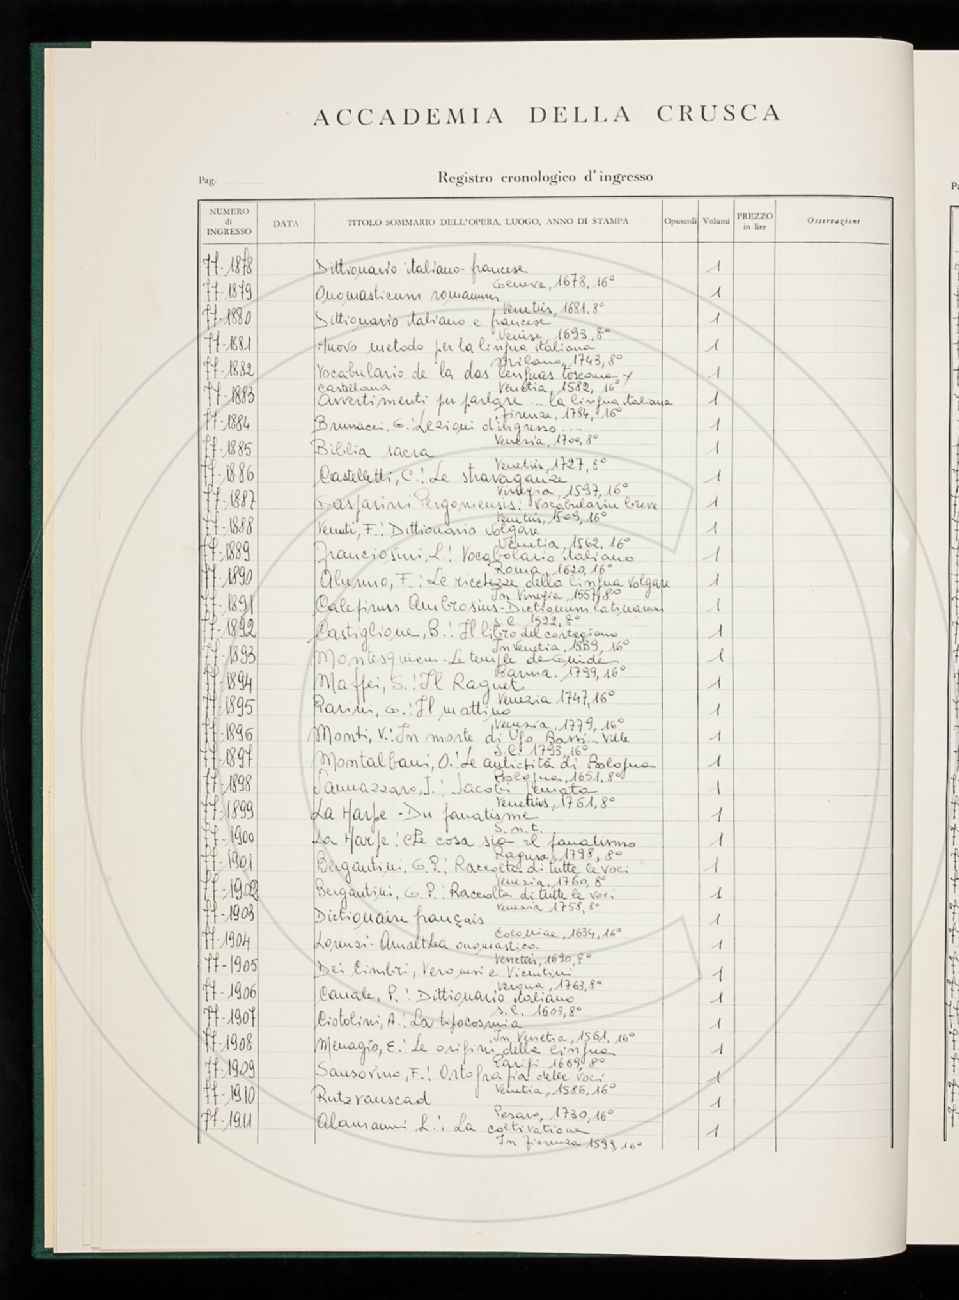 ACCADEMIA DELLA CRUSCA
Pag.
Registro cronologico d'ingresso
NUMERO di INGRESSO DATA TITOLO SOMMARIO DELL'OPERA, LUOGO, ANNO DI STAMPA Opuscoli Volumi PREZZO in lire Osservazioni
77-1878 Dittionario italiano-francese 1
Geneve, 1678, 16°
77-1879 Onomasticum romanum 1
Venetiis, 1681, 8°
77-1880 Dittionario italiano e francese 1
Venise, 1693, 8°
77-1881 Nuovo metodo per la lingua italiana 1
Milano, 1743, 8°
77-1882 Vocabulario de la das lenguas toscana y 1
castellana Venetia, 1582, 16°
77-1883 Avvertimenti per parlare ... la lingua italiana 1
Firenze, 1784, 16°
77-1884 Brunacci, G.: Lezioni d'ingresso ... 1
Venezia, 1700, 8°
77-1885 Biblia sacra 1
Venetiis, 1727, 8°
77-1886 Castelletti, C.: Le stravaganze 1
Vinegia, 1597, 16°
77-1887 Gasparini Pergomensis: Vocabularium breve 1
Venetiis, 1509, 16°
77-1888 Venuti, F.: Dittionario volgare 1
Venetia, 1562, 16°
77-1889 Franciosini, L.: Vocabolario italiano 1
Roma, 1620, 16°
77-1890 Alunno, F.: Le ricchezze della lingua volgare 1
In Vinegia, 1557, 8°
77-1891 Calepinus Ambrosius-Dictionum latinarum 1
s.l. 1522, 8°
77-1892 Castiglione, B.: Il libro del cortegiano 1
In Venetia, 1559, 16°
77-1893 Montesquieu-Le temple de Gnide 1
Parma, 1799, 16°
77-1894 Maffei, S.: Il Raguet 1
Venezia 1747, 16°
77-1895 Parini, G.: Il mattino 1
Venezia, 1779, 16°
77-1896 Monti, V.: In morte di Ugo Bassi... 1
S.l. 1793, 16°
77-1897 Montalbani, O.: Le antichità di Bologna 1
Bologna, 1651, 8°
77-1898 Sannazzaro, J.: Jacobi 1
Venetiis, 1761, 8°
77-1899 La Harpe - Du fanatisme 1
S.n.t.
77-1900 La Harpe: Che cosa sia il fanatismo 1
Ragusa, 1798, 8°
77-1901 Bergantini, G.P.: Raccolta di tutte le voci 1
Venezia, 1760, 8°
77-1902 Bergantini, G.P.: Raccolta di tutte le voci 1
Venezia 1758, 8°
77-1903 Dictionaire français 1
Coloniae, 1634, 16°
77-1904 Lorenzi-Amalthea onomastica 1
Venetiis, 1690, 8°
77-1905 Dei Cimbri, Veronesi e Vicentini 1
Verona, 1763, 8°
77-1906 Canale, P.: Dittionario italiano 1
s.l. 1603, 8°
77-1907 Citolini, A.: La tipocosmia 1
In Venetia, 1561, 16°
77-1908 Menagio, E.: Le origini della lingua 1
Parigi 1669, 8°
77-1909 Sansovino, F.: Ortografia delle voci 1
Venetia, 1586, 16°
77-1910 Rutzvanscad 1
Pesaro, 1730, 16°
77-1911 Alamanni L.: La coltivatione 1
In Fiorenza 1599, 16°